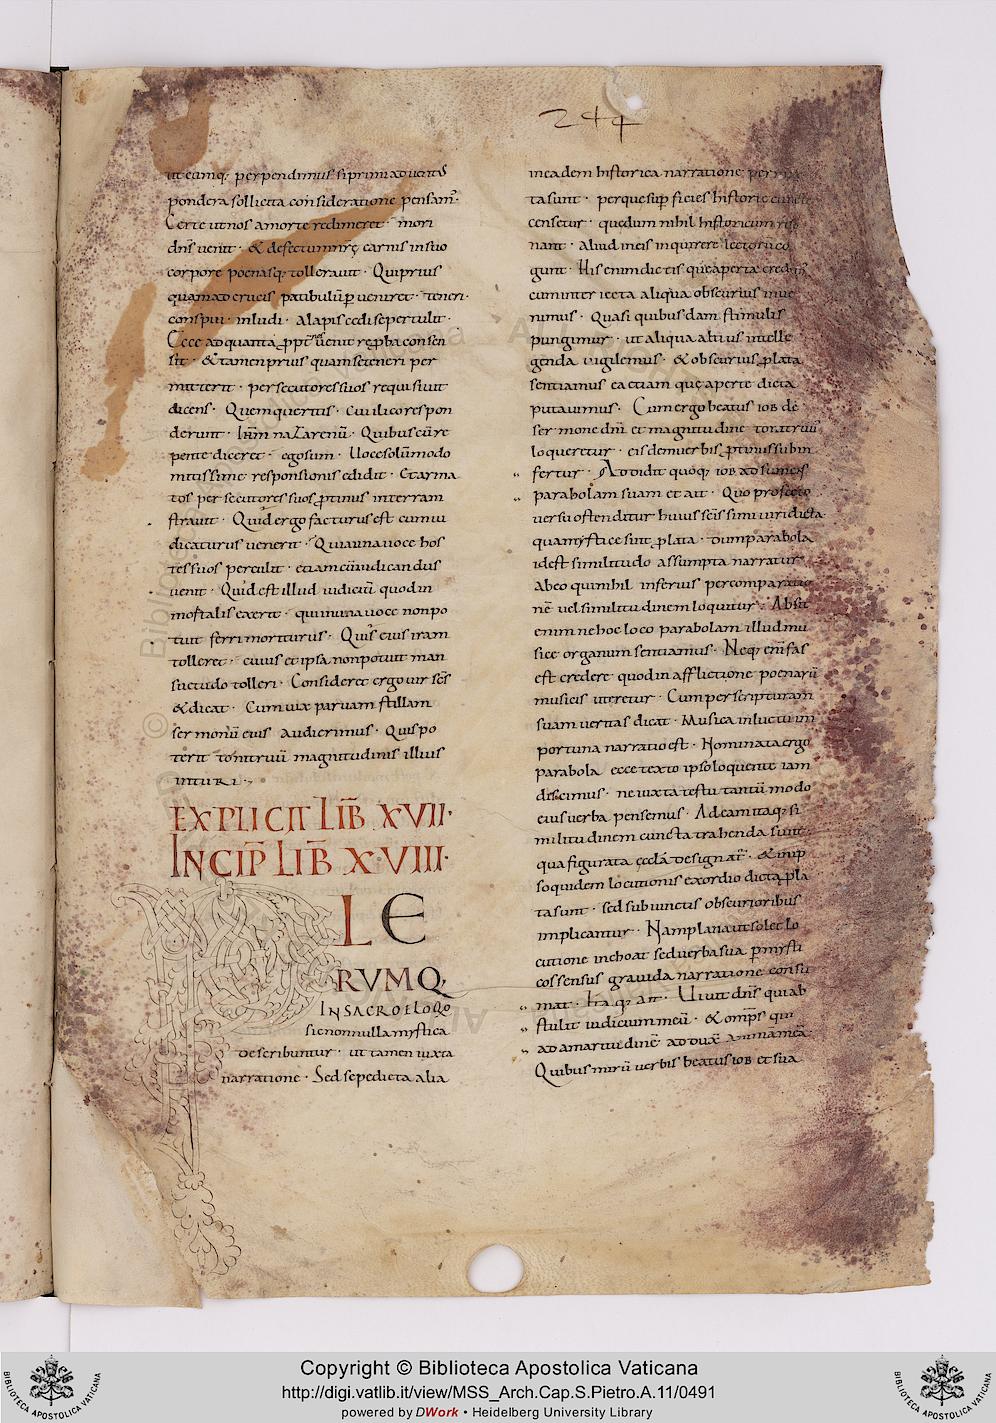 244
ut cumq; perpendimus si primi adventus
pondera sollicita consideratione pensam̄·
Certe ut nos a morte redimeret · mori
dn̄s venit · & defectum nr̄ę carnis in suo
corpore poenasq; tolleravit · Qui prius
quam ad crucis patibulū p̱veniret · teneri ·
conspui · inludi · alapis cedi se pertulit ·
Ecce ad quanta ꝓpt̄ venit
sit · & tamen prius quam se teneri per
mitterit · persecutores suos requisivit
dicens · Quem queritis · Cui ilico respon
derunt · Ihm̄ nazarenū · Quibus cū re
pente diceret · ego sum · Voce solū modo
mitissime responsionis edidit · et arma
tos persecutores suos ꝓtinus in terram
stravit · Quid ergo facturus est cum iu
dicaturus venerit · Qui una voce hos
tes suos perculit · etiam cū iudicandus
venit · Quid est illud iudiciū quod in
mortalis exerit · qui in una voce non po
tuit ferri moriturus · Quis eius iram
tolleret · cuius et ipsa non potuit man
suetudo tolleri · Consideret ergo vir sc̄s
& dicat · Cum vix parvam stillam
sermonū eius audierimus · Quis po
terit tonitruū magnitudinis illius
intueri ·
EXPLICIT LIB̄ XVII·
INCIP̄ LIB̄ XVIII·
PLE
RVMQ;
IN SACRO ELOQ̄O
sic nonnulla mystica
describuntur · ut tamen iuxta
narratione · Sed sepe dicta alia
in eadem historica narratione per
ta sunt · per que sup̱ficies historię
censetur · quędam nihil historicum
nant · aliud in eis inquirere lectorē co
gunt · His enim dictis quę aperta
cum interiecta aliqua obscurius inve
nimus · Quasi quibusdam stimulis
pungimur · ut aliqua altius intelle
genda vigilemus · & obscurius ꝓlata
sentiamus ea etiam quę aperte dicta
putavimus · Cum ergo beatus iob de
sermone dn̄i et magnitudine tonitruū
loqueretur · eisdem verbis ꝓtinus subin
fertur · Addidit quoq; iob adsumens
parabolam suam et ait · Quo profecto
versu ostenditur huius sc̄issimi viri dicta
quam mystice sint ꝓlata · dum parabola
id est similitudo assumpta narratur
ab eo qui nihil inferius per comparatio
nē vel similitudinem loquitur · Absit
enim ne hoc loco parabolam illud mu
sice organum sentiamus · Neq; enī fas
est credere quod in afflictione poenarū
musicis uteretur · Cum per scripturam
suam veritas dicat · Musica in luctu in
portuna narratio est · Nominata ergo
parabola ecce texto ipso loquente iam
discimus · ne iuxta textū tantū modo
eius verba pensemus · Ad eam itaq; si
militudinem cuncta trahenda sunt
qua figurata ęcclā designat̄ · & in ip̄
so quidem locutionis exordio dicta ꝓla
ta sunt · sed subiunctis obscurioribus
implicantur · Nam plana ut solet lo
cutione inchoat sed verba sua ꝑ mysti
cos sensus gravida narratione consu
mat · Ita q; ait · Vivit dn̄s qui ab
stulit iudicium meū · & omp̄s qui
ad amaritudinē adduxit animam meā
Quibus mirū verbis beatus iob et sua
Copyright © Biblioteca Apostolica Vaticana
http://digi.vatlib.it/view/MSS_Arch.Cap.S.Pietro.A.11/0491
powered by DWork • Heidelberg University Library
BIBLIOTECA APOSTOLICA VATICANA
BIBLIOTECA APOSTOLICA VATICANA